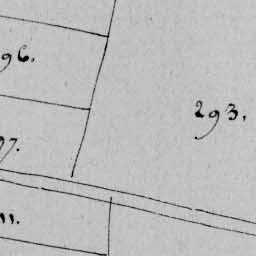 96.
293.
97.